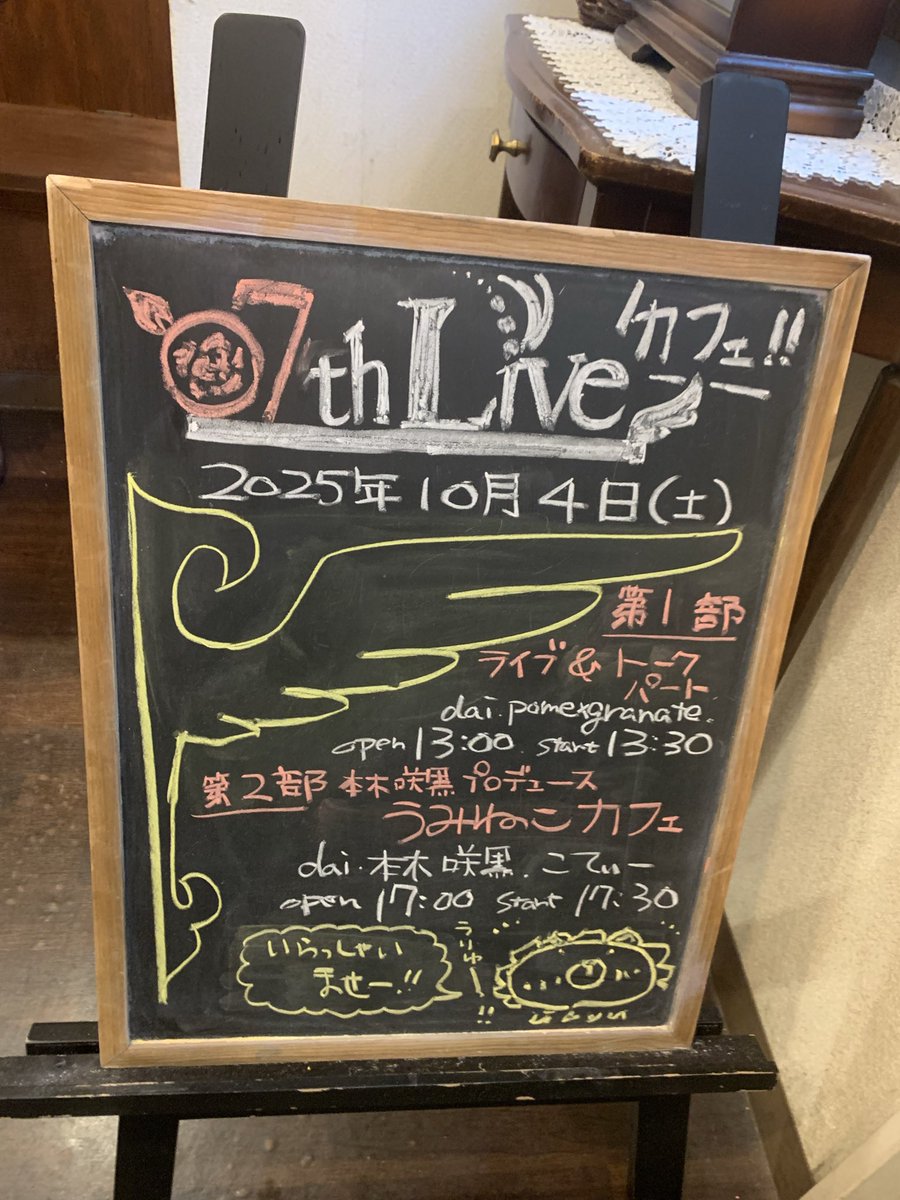 07th Live カフェ!!
2025年10月4日(土)
第1部
ライブ&トーク
パート
dai.pomexgranate.
open 13:00 start 13:30
第2部 本木咲黒プロデュース
うみねこカフェ
dai.本木咲黒.こてぃー
open 17:00 start 17:30
いらっしゃい
ませー!!
うりゅー!!